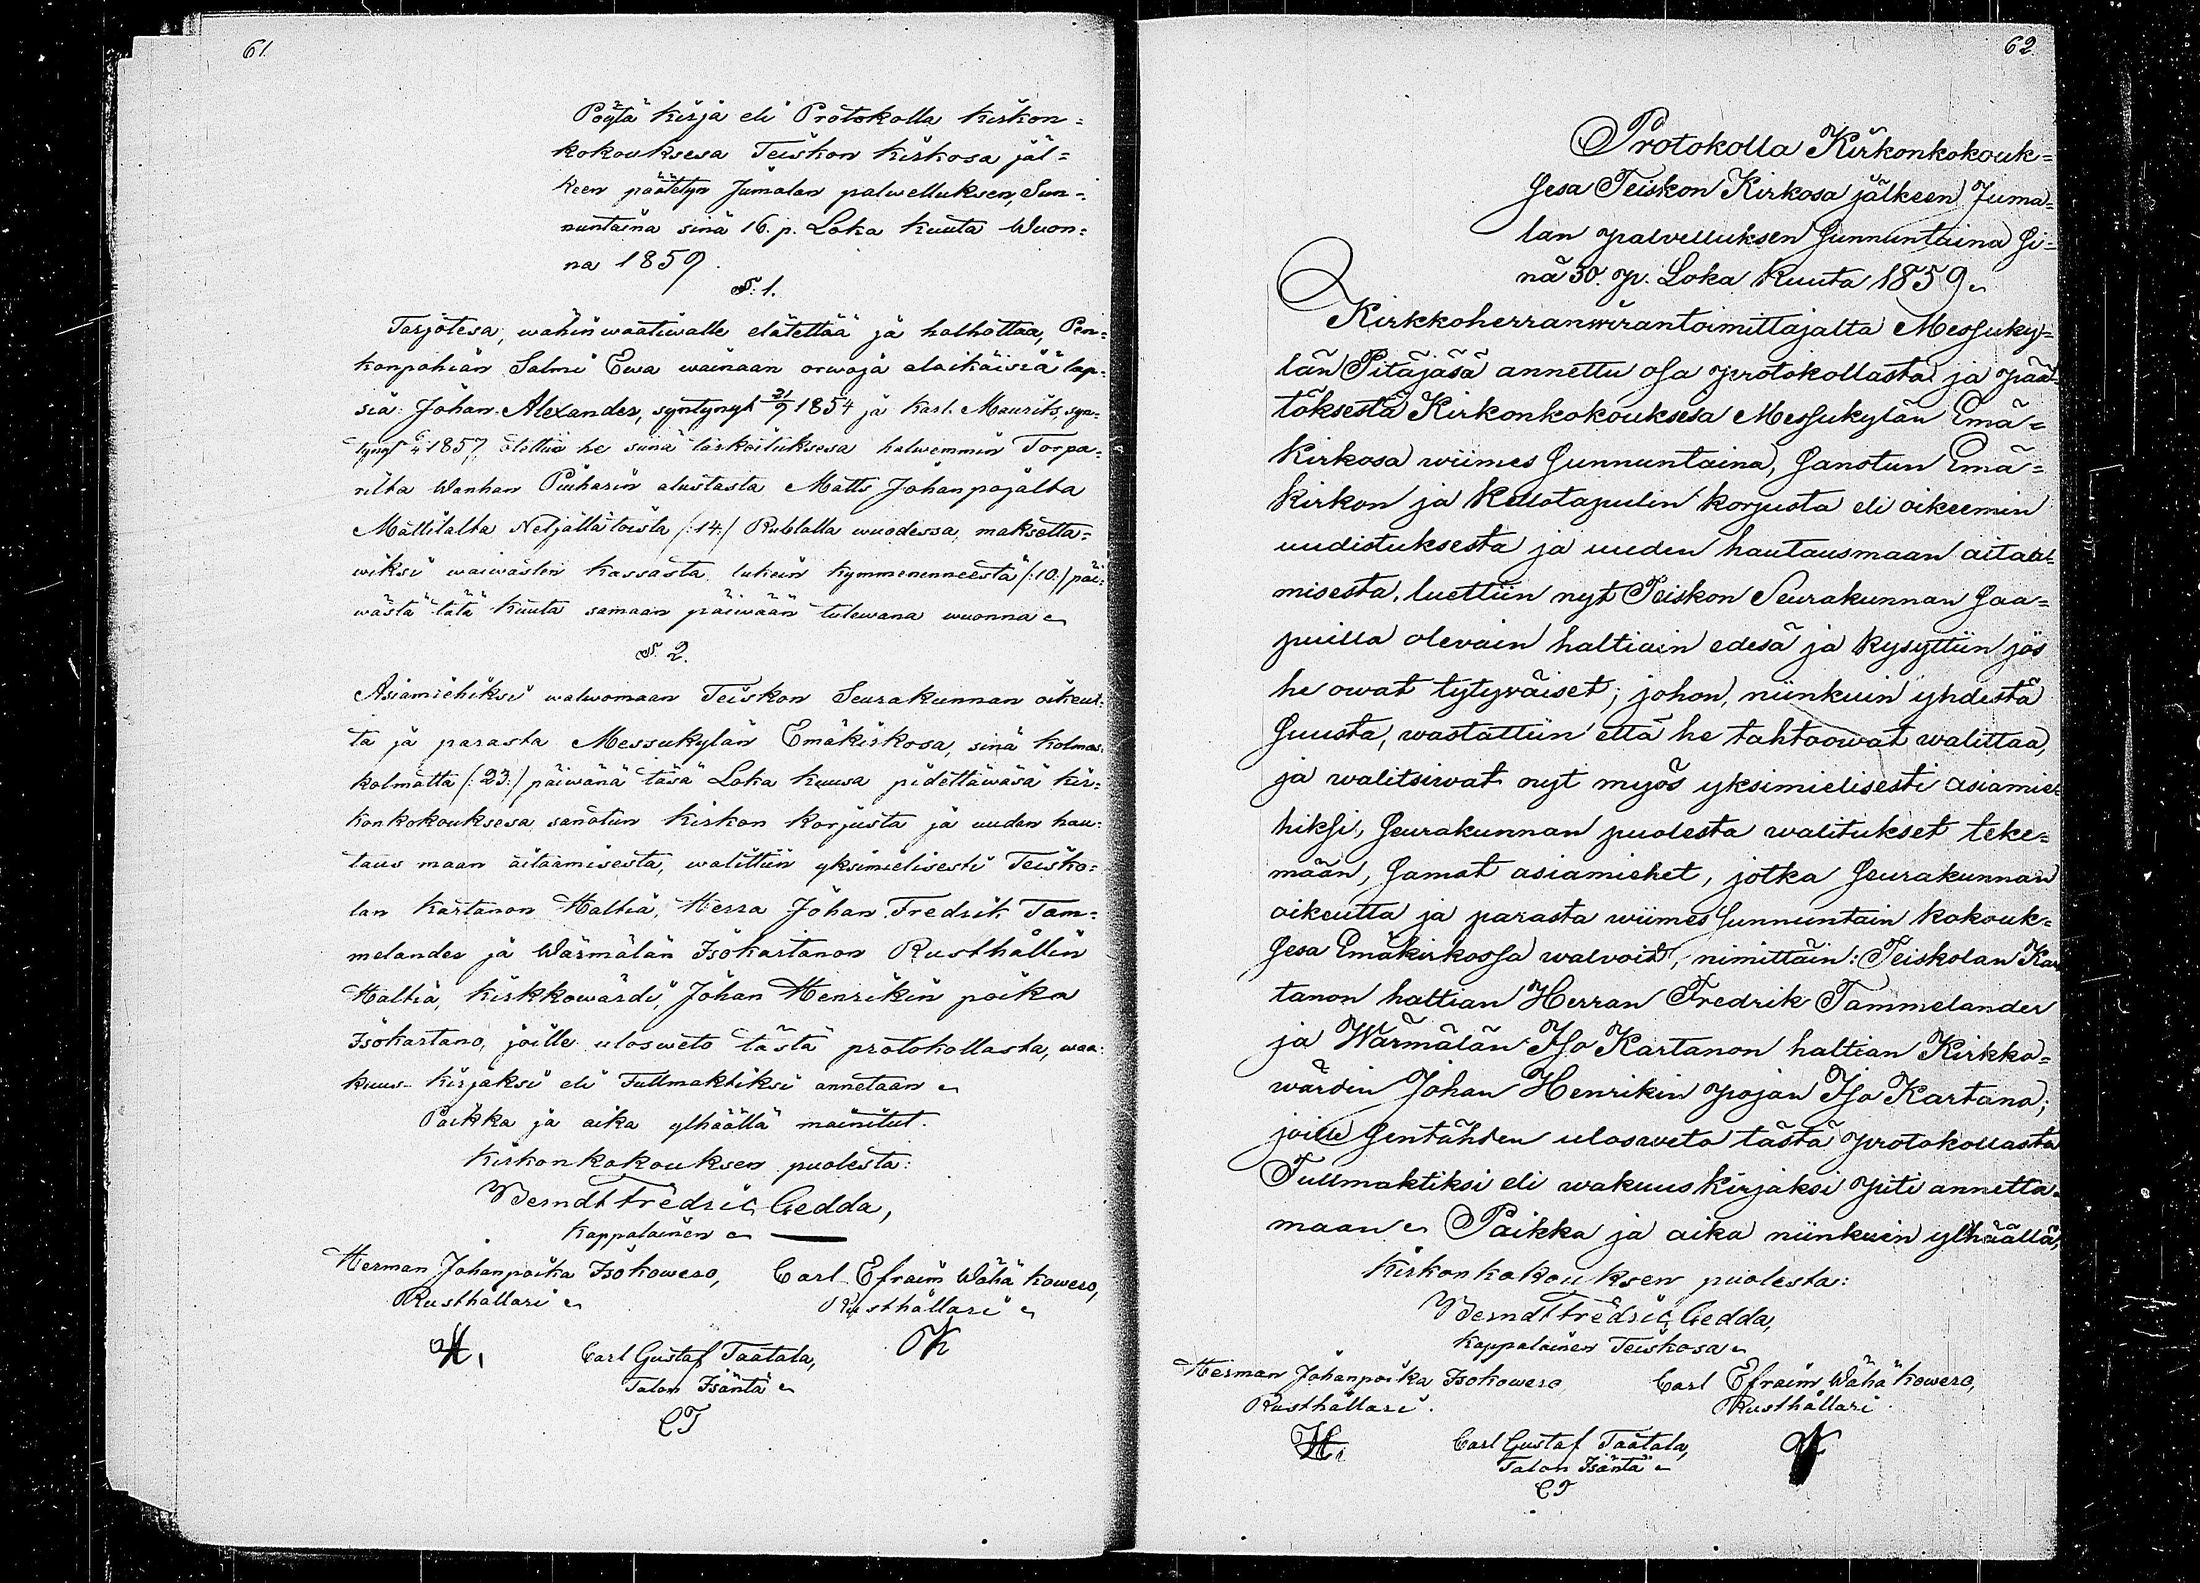 61.
Pöytä kirja eli Protokolla kirkon=
kokouksesa Teiskon kirkosa jäl=
keen päätetyn Jumalan palwelluksen, Sun=
nuntaina sinä 16. p. Loka kuuta Wuon=
na 1859.
§. 1.
Tarjotesa, wähin waatiwalle elätettää ja holhottaa, Pen=
konpohian Salmi Ewa wainaan orwoja alaikäisiä lap=
sia: Johan Alexander, syntynyt 21/9 1854 ja Karl Maurits, syn=
tynyt 1857, otettiin he siinä tarkoituksesa halwemmin Torpa=
rilta Wanhan Puiharin alustasta Matts Johanpojalta
Mattilalta Neljällätoista /:14:/ Rublalla wuodessa, maksetta=
wiksi waiwasten kassasta, lukein kymmenenneestä /:10:/ päi=
wästä tätä kuuta samaan päiwään tulewana wuonna
§. 2.
Asiamiehiksi walwomaan Teiskon Seurakunnan oikeut=
ta ja parasta Messukylän Emäkirkosa, sinä kolmas=
kolmatta /:23:/ päiwänä täsä Loka kuusa pidettäwäsä kir=
konkokouksesa sanotun kirkon korjusta ja uuden hau=
taus maan aitaamisesta, walittiin yksimielisesti Teisko=
lan kartanon Haltia, Herra Johan Fredrik Tam=
melander ja Wärmälän Isokartanon Rusthållin
Haltia, kirkkowärdi, Johan Henrikin poika
Isokartano, joille ulosweto tästä protokollasta, waa=
kuus kirjaksi eli Fullmaktiksi annetaan
Paikka ja aika ylhäällä mainitut.
Kirkonkokouksen puolesta:
Berndt Fredric Gedda,
Kappalainen
Herman Johanpoika Isokowero, Carl Efraim Wähä kowero,
Rusthållari Rusthållari
Carl Gustaf Taatala,
Talon Isäntä
CT
62.
Protokolla Kirkonkokouk=
sesa Teiskon Kirkosa jälkeen Juma=
lan palvelluksen sunnuntaina si=
nä 30. p. Loka Kuuta 1859
Kirkkoherranwirantoimittajalta Messuky=
län Pitäjäsä annettu osa protokollasta ja pää=
töksestä Kirkonkokouksesa Messukylän Emä=
kirkosa wiimes sunnuntaina, sanotun Emä=
kirkon ja Kellotapulin korjusta eli oikeemin
uudistuksesta ja uuden hautausmaan aitaa=
misesta, luettiin nyt Teiskon Seurakunnan saa=
puilla olevain haltiain edesä ja kysyttiin jos
he owat tytyväiset; johon, niinkuin yhdestä
suusta, wastattiin että he tahtoowat walittaa,
ja walitsiwat nyt myös yksimielisesti asiamie=
hiksi, seurakunnan puolesta walitukset teke=
mään, samat asiamiehet, jotka seurakunnan
oikeutta ja parasta wiimes sunnuntain kokouk=
sesa Emäkirkossa walvoit, nimittäin: Teiskolan Kar
tanon haltian Herran Fredrik Tammelander
ja Wärmälän Iso Kartanon haltian Kirkko=
wärdin Johan Henrikin pojan Iso Kartano;
joille sentähden ulosweto tästä protokollasta
Fullmaktiksi eli wakuus kirjaksi piti annetta=
maan Paikka ja aika niinkuin ylhäällä,
Kirkonkokouksen puolesta:
Berndt Fredric Gedda,
Kappalainen Teiskosa
Herman Johanpoika Isokowero Carl Efraim Wähä kowero,
Rusthållari. Rusthållari
Carl Gustaf Taatala,
Talon Isäntä
CT